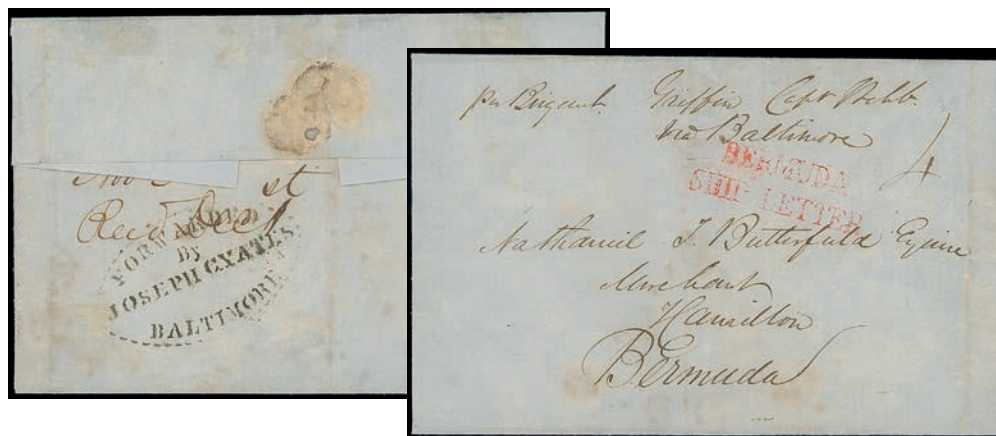 st
Recd Decr
FORWARDED
By
JOSEPH C. YATES.
BALTIMORE
per Brigant. Griffin Capt Webb
via Baltimore
4
BERMUDA
SHIP LETTER
Nathaniel T. Butterfield Esquire
Merchant
Hamilton
Bermuda